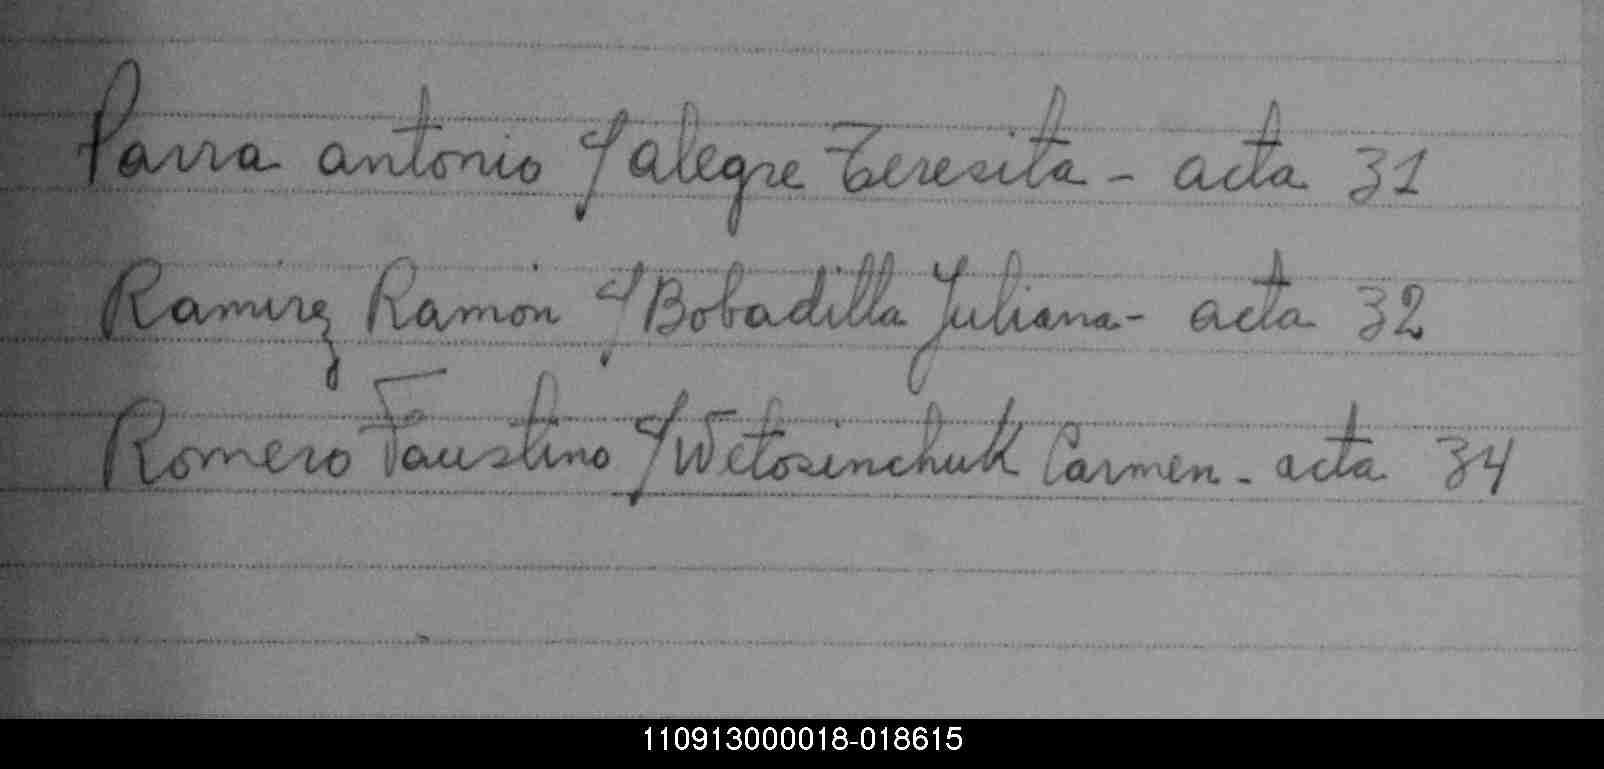 Parra antonio c/ alegre Teresita - acta 31
Ramirez Ramón c/ Bobadilla Juliana - acta 32
Romero Faustino c/ Wetosinchuk Carmen - acta 34
110913000018-018615